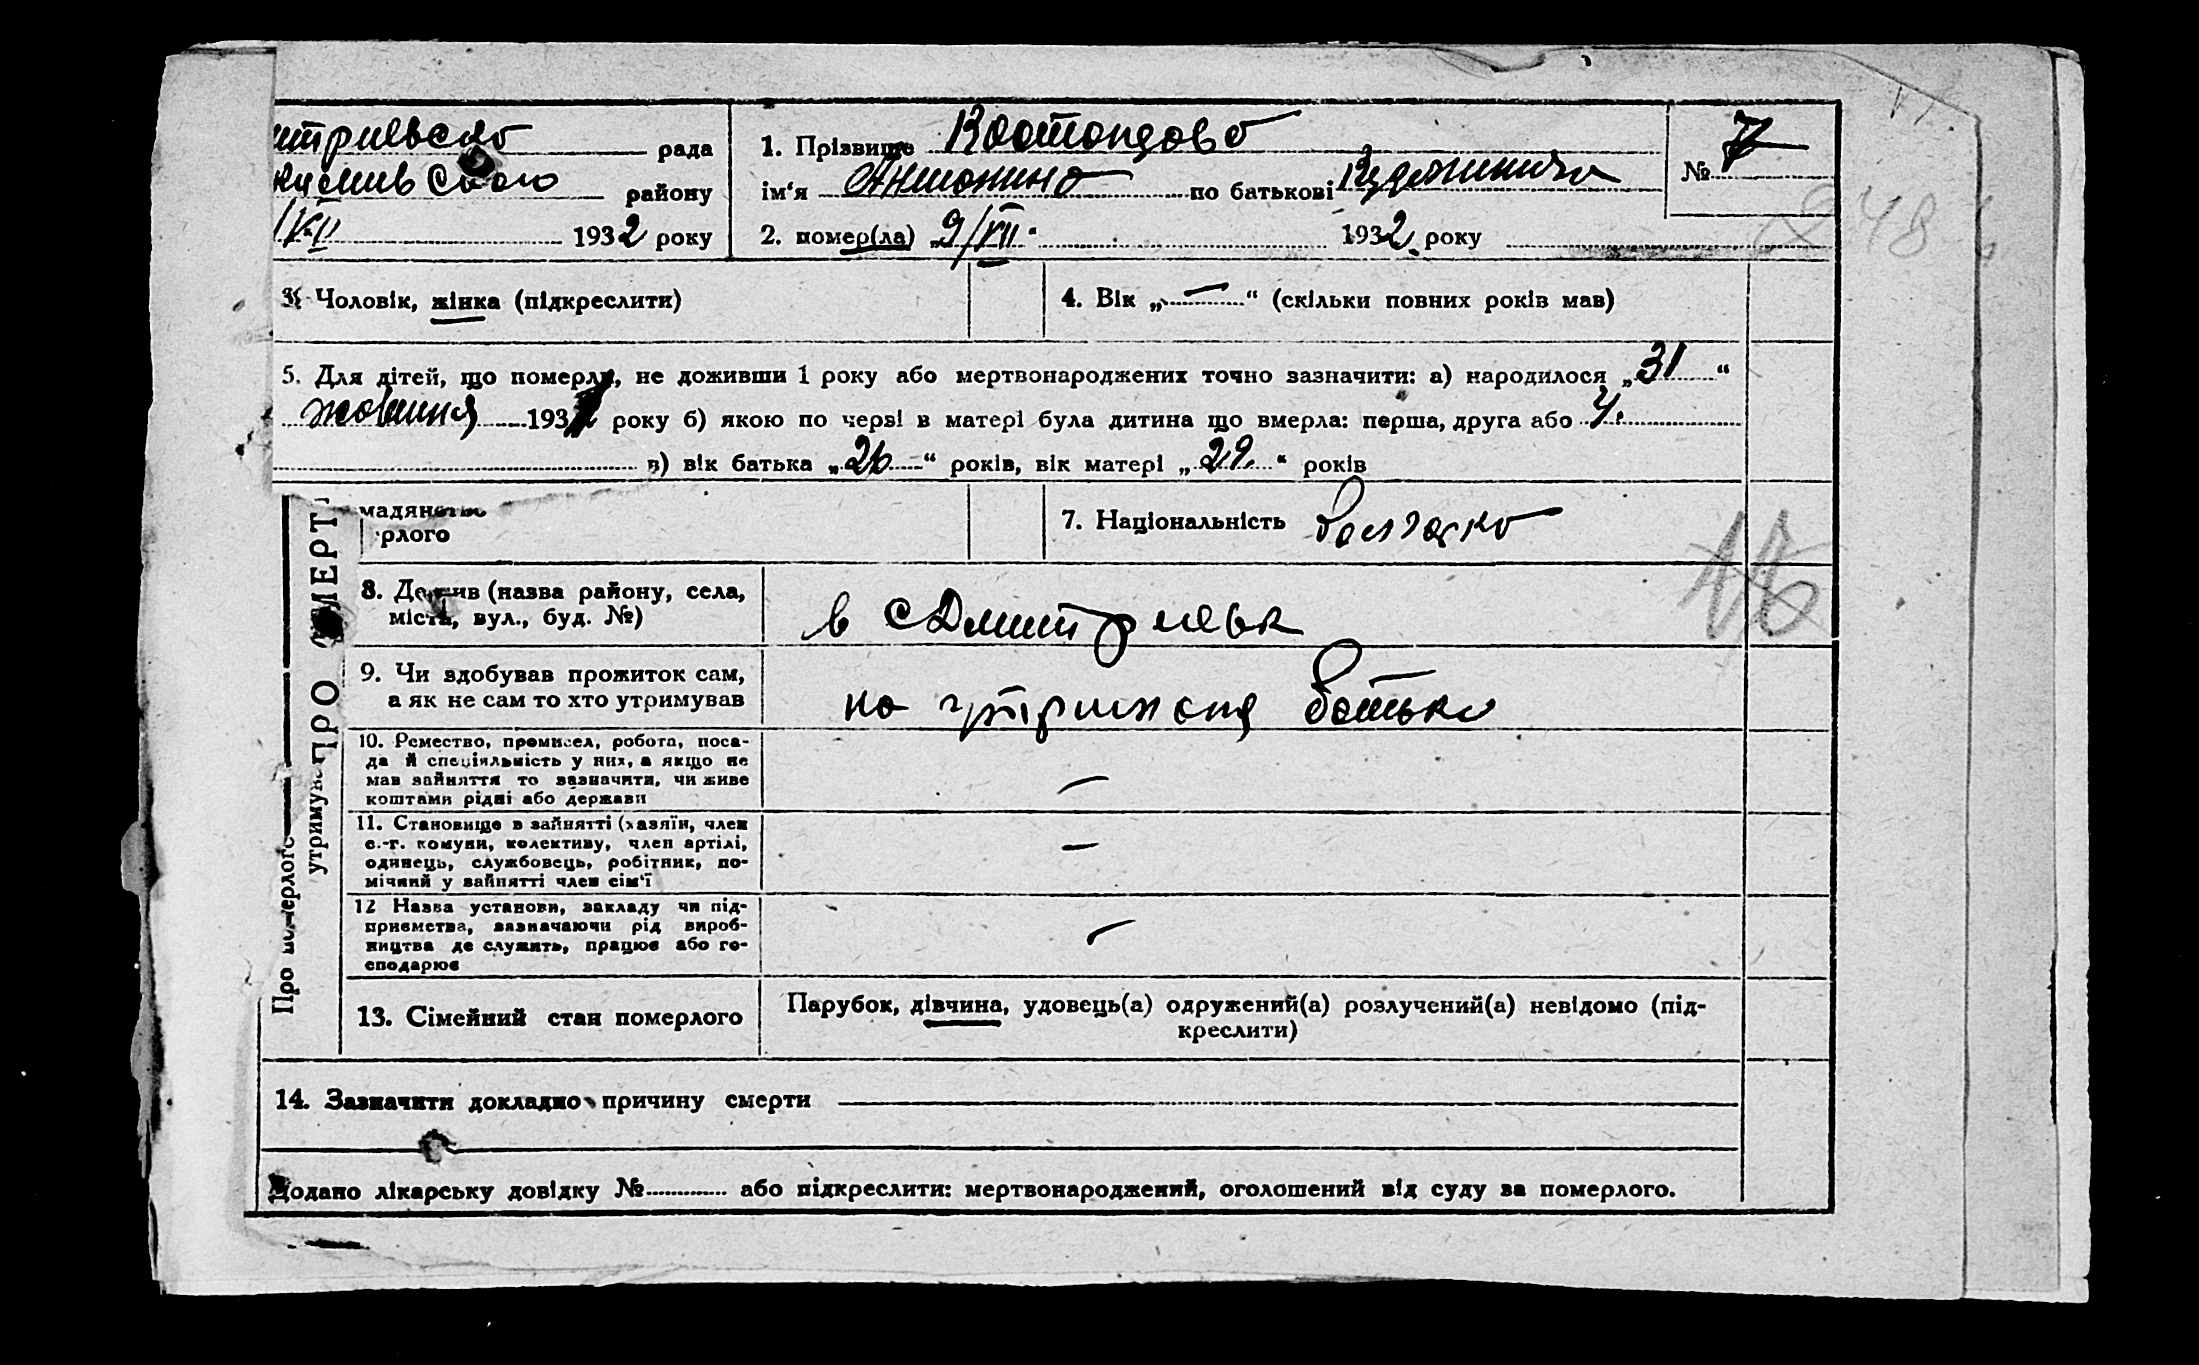 итриевська рада
району
/VII 1932 року
1. Прізвище
ім'я Антонина по батькові
2. помер(ла) 9/VII 1932 року
№ 7
248
3. Чоловік, жінка (підкреслити)
4. Вік „—“ (скільки повних років мав)
5. Для дітей, що померли, не доживши 1 року або мертвонароджених точно зазначити: а) народилося „31“
жовтня 193 року б) якою по черзі в матері була дитина що вмерла: перша, друга або 4.
в) вік батька „26“ років, вік матері „29“ років
мадянство
рлого
7. Національність болгарка
8. Де жив (назва району, села,
місто, вул., буд. №)
в с Дмитриевк
9. Чи здобував прожиток сам,
а як не сам то хто утримував
на утриманя батька
10. Ремество, промисел, робота, поса-
да й спеціяльність у них, а якщо не
мав зайняття то зазначити, чи живе
коштами рідні або держави
—
11. Становище в зайнятті (хазяїн, член
с.-г. комуни, колективу, член артілі,
одинець, службовець, робітник, по-
мічний у зайнятті член сім'ї
—
12 Назва установи, закладу чи під-
приємства, зазначаючи рід вироб-
ництва де служить, працює або го-
сподарює
—
13. Сімейний стан померлого
Парубок, дівчина, удовець(а) одружений(а) розлучений(а) невідомо (під-
креслити)
14. Зазначити докладно причину смерти
Додано лікарську довідку № або підкреслити: мертвонароджений, оголошений від суду за померлого.
Про померлого
утримув
ПРО СМЕРТ